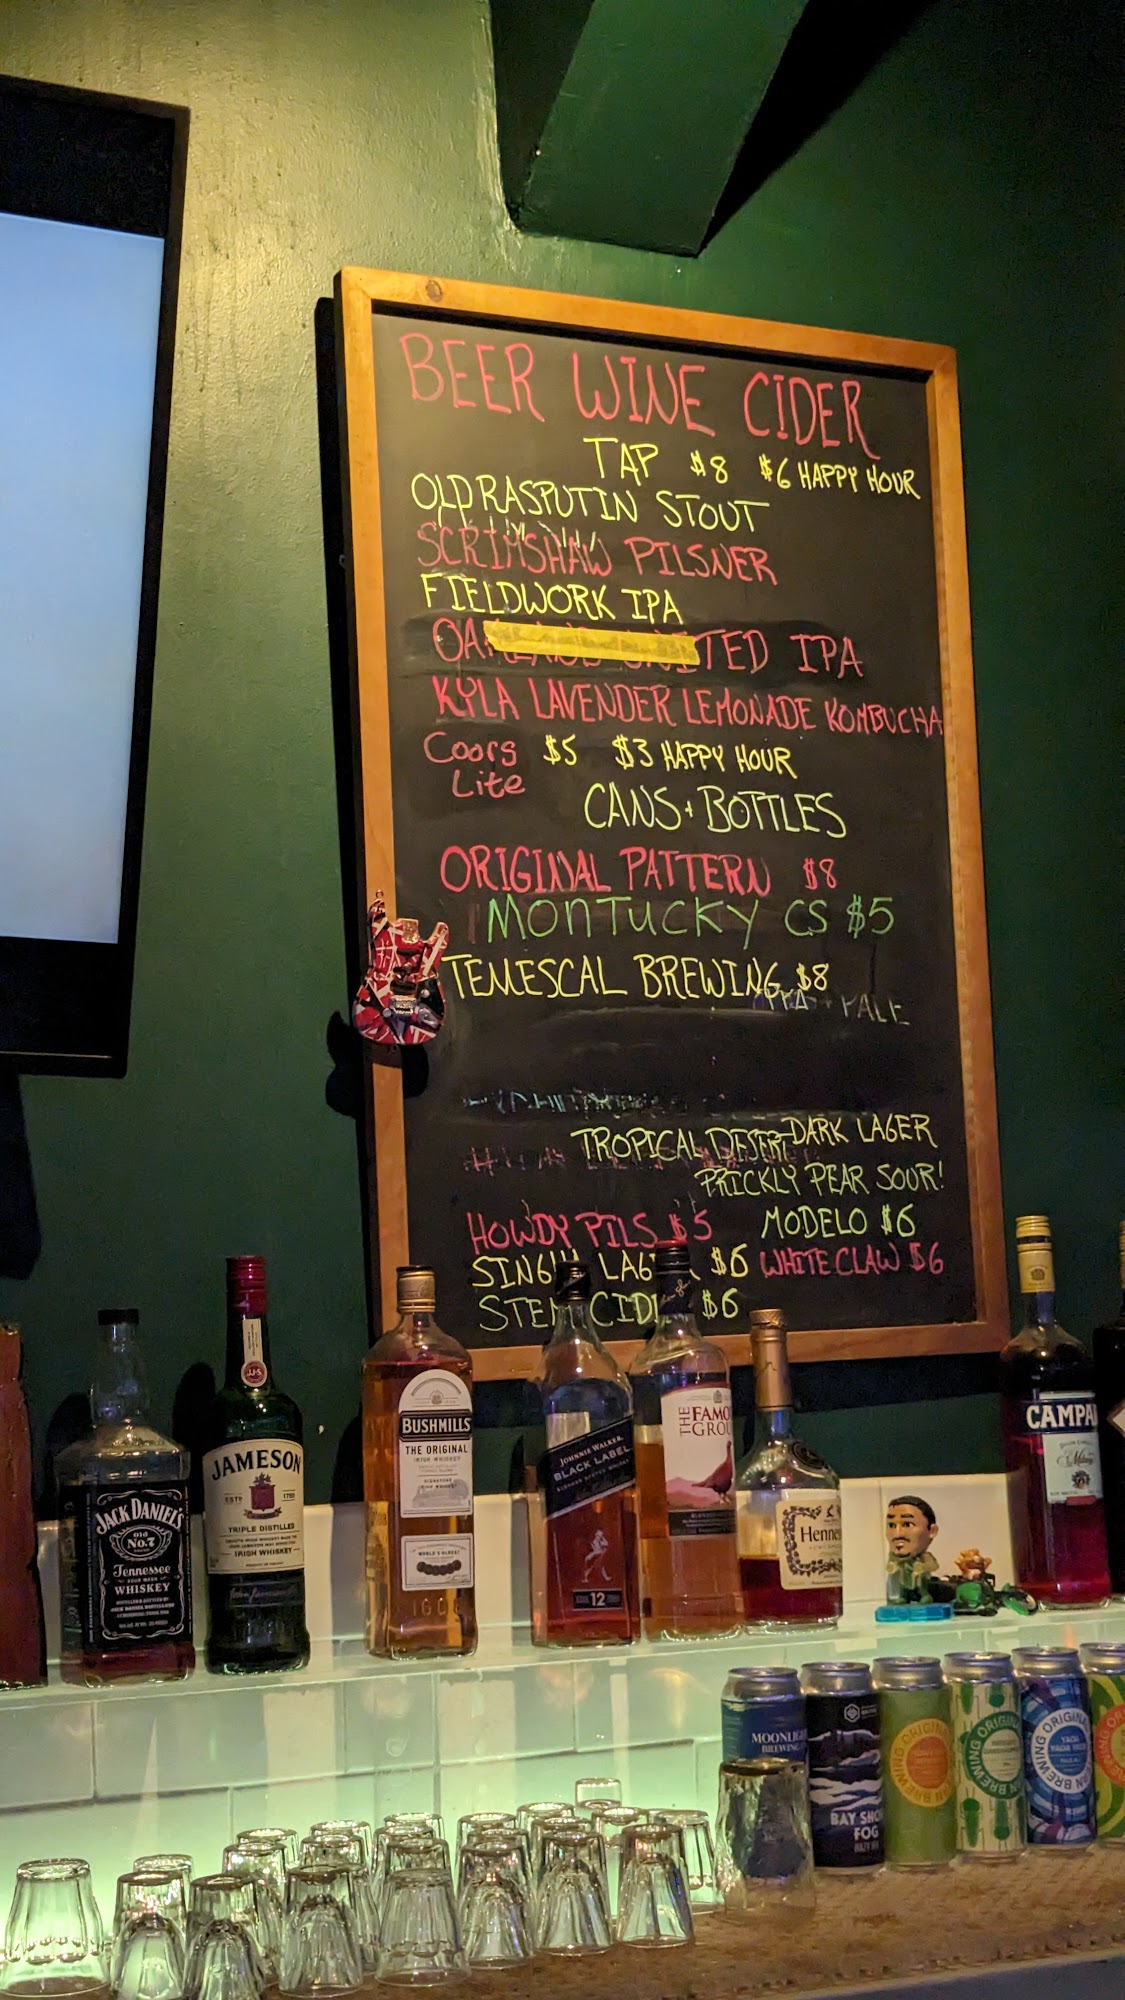 BEER WINE CIDER
TAP $8 $6 HAPPY HOUR
OLD RASPUTIN STOUT
SCRIMSHAW PILSNER
FIELDWORK IPA
OAKLAND UNITED IPA
KYLA LAVENDER LEMONADE KOMBUCHA
Coors $5 $3 HAPPY HOUR
Lite
CANS + BOTTLES
ORIGINAL PATTERN $8
MONTUCKY CS $5
TEMESCAL BREWING $8
PALE
TROPICAL DESERT DARK LAGER
PRICKLY PEAR SOUR!
HOWDY PILS $5 MODELO $6
SINGHA LAGER $6 WHITE CLAW $6
STEM CIDER $6
JACK DANIEL'S
OLD
No.7
Tennessee
WHISKEY
JAMESON
ESTD 1780
TRIPLE DISTILLED
IRISH WHISKEY
BUSHMILLS
THE ORIGINAL
IRISH WHISKEY
JOHNNIE WALKER
BLACK LABEL
12
THE FAMO
GROU
Henne
CAMPA
MOONLIG
BREWING
BAY SHO
FOG
ORIGIN
BREWING
ORIGIN
BREWING
ORIGINA
BREWING